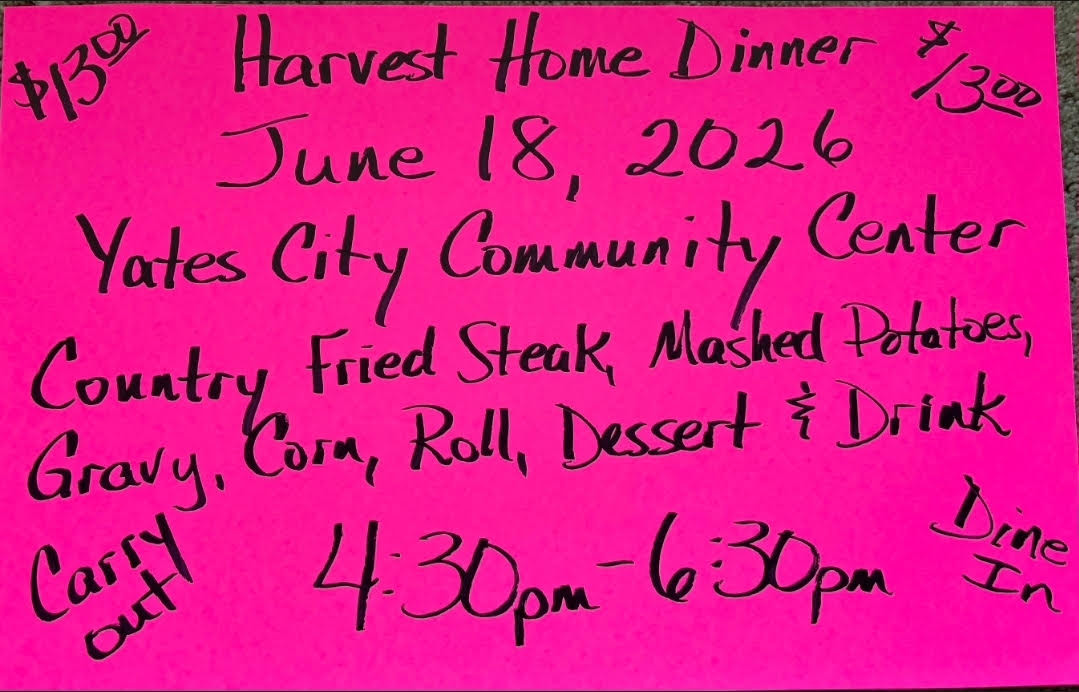 $13.00
Harvest Home Dinner
$13.00
June 18, 2026
Yates City Community Center
Country Fried Steak, Mashed Potatoes,
Gravy, Corn, Roll, Dessert & Drink
Carry
out
4:30pm - 6:30pm
Dine
In